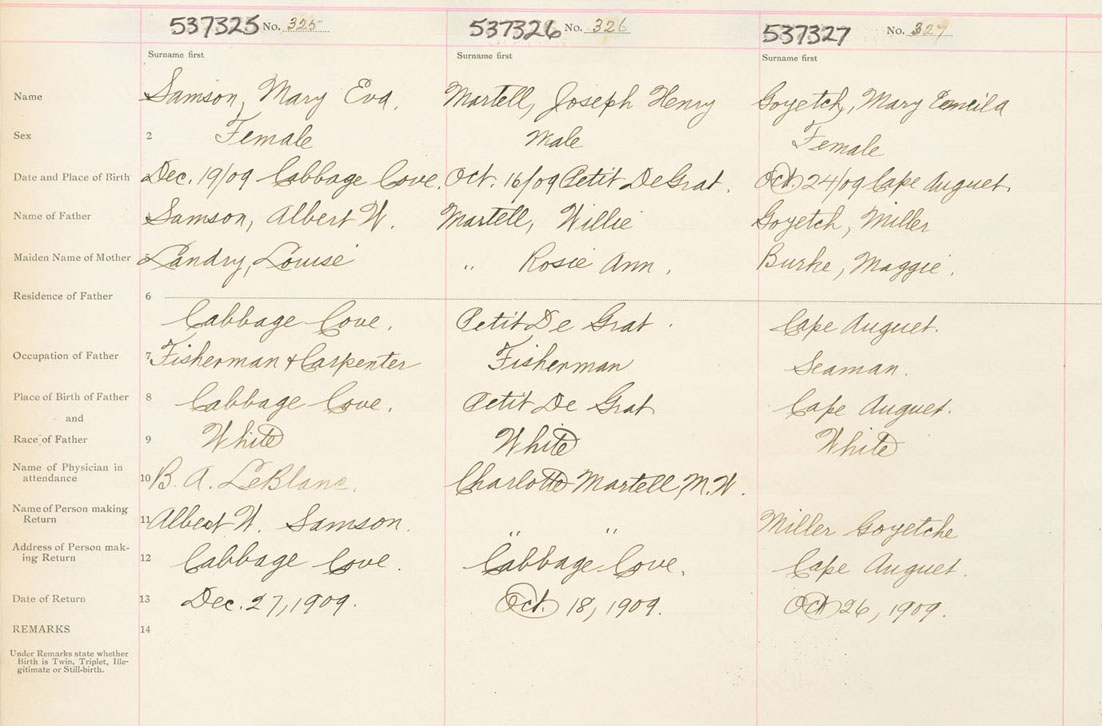 537325 No. 325 537326 No. 326 537327 No. 327
Surname first Surname first Surname first
Name Samson, Mary Eva. Martell, Joseph Henry Goyetch, Mary
Sex 2 Female Male Female
Date and Place of Birth Dec. 19/09 Cabbage Cove. Oct. 16/09 Petit DeGrat. Oct. 24/09 Cape Auguet.
Name of Father Samson, Albert W. Martell, Willie Goyetch, Miller
Maiden Name of Mother Landry, Louise " Rosie Ann. Burke, Maggie.
Residence of Father 6
Cabbage Cove. Petit De Grat. Cape Auguet.
Occupation of Father 7 Fisherman & Carpenter Fisherman Seaman.
Place of Birth of Father 8 Cabbage Cove. Petit De Grat Cape Auguet.
and
Race of Father 9 White White White
Name of Physician in
attendance 10 B. A. LeBlanc. Charlotte Martell, M.W.
Name of Person making
Return 11 Albert W. Samson. " " Miller Goyetche
Address of Person mak-
ing Return 12 Cabbage Cove. Cabbage Cove. Cape Auguet.
Date of Return 13 Dec. 27, 1909. Oct. 18, 1909. Oct 26, 1909.
REMARKS 14
Under Remarks state whether
Birth is Twin, Triplet, Ille-
gitimate or Still-birth.